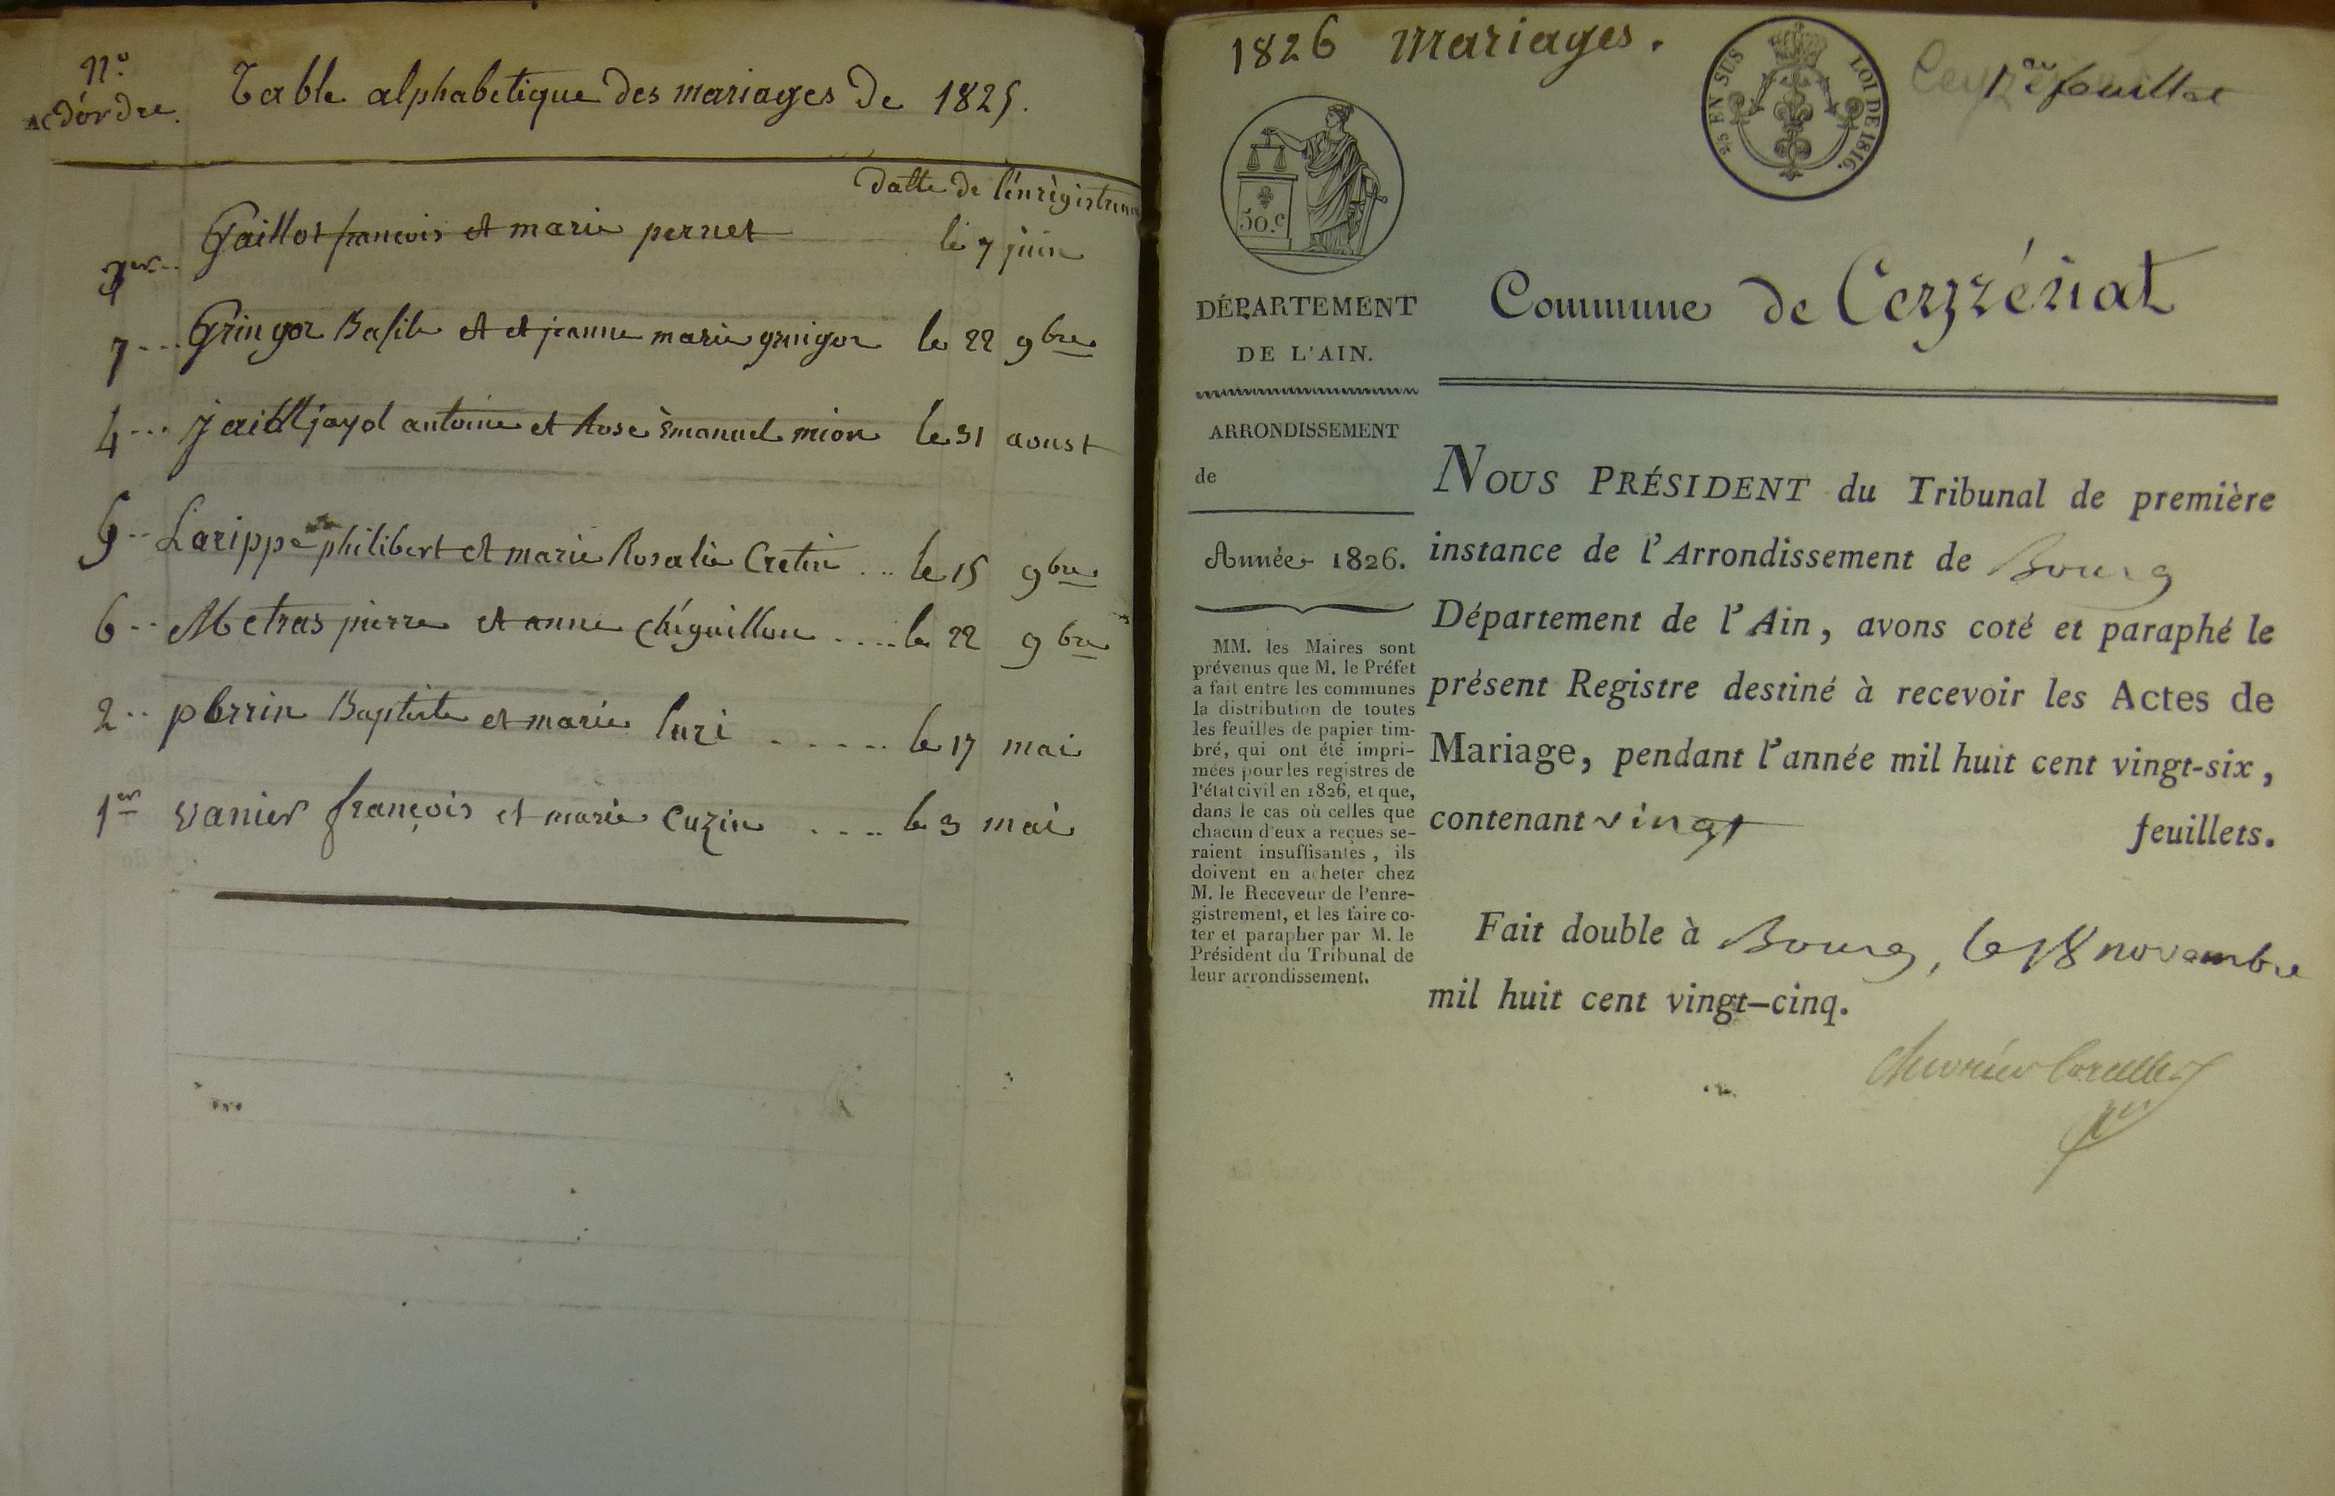 N.o
d'ordre.
Table alphabetique des mariages de 1825.
datte de l'enrègistrem
3 Gaillot françois et marie pernet le 7 juin
7 Gringoz Basile et et jeanne marie gringoz le 22 9bre
4 jaidt jayol antoine et Rose Emanuel mion le 31 aoust
5 Larippe philibert et marie Rosalie Cretin le 15 9bre
6 Metras pierre et anne chiguillon le 22 9bre
2 perrin Baptiste et marie luzi le 17 mai
1er vanier françois et marie Cuzin le 3 mai
1826 mariages.
25 EN SUS LOI DE 1816.
feuillet
50.c
Commune de Ceyzériat
DÉPARTEMENT
DE L'AIN.
ARRONDISSEMENT
de
Année 1826.
MM. les Maires sont
prévenus que M. le Préfet
a fait entre les communes
la distribution de toutes
les feuilles de papier tim-
bré, qui ont été impri-
mées pour les registres de
l'état civil en 1826, et que,
dans le cas où celles que
chacun d'eux a reçues se-
raient insuffisantes, ils
doivent en acheter chez
M. le Receveur de l'enre-
gistrement, et les faire co-
ter et parapher par M. le
Président du Tribunal de
leur arrondissement.
NOUS PRÉSIDENT du Tribunal de première
instance de l'Arrondissement de Bourg
Département de l'Ain, avons coté et paraphé le
présent Registre destiné à recevoir les Actes de
Mariage, pendant l'année mil huit cent vingt-six,
contenant vingt feuillets.
Fait double à Bourg, le 18 novembre
mil huit cent vingt-cinq.